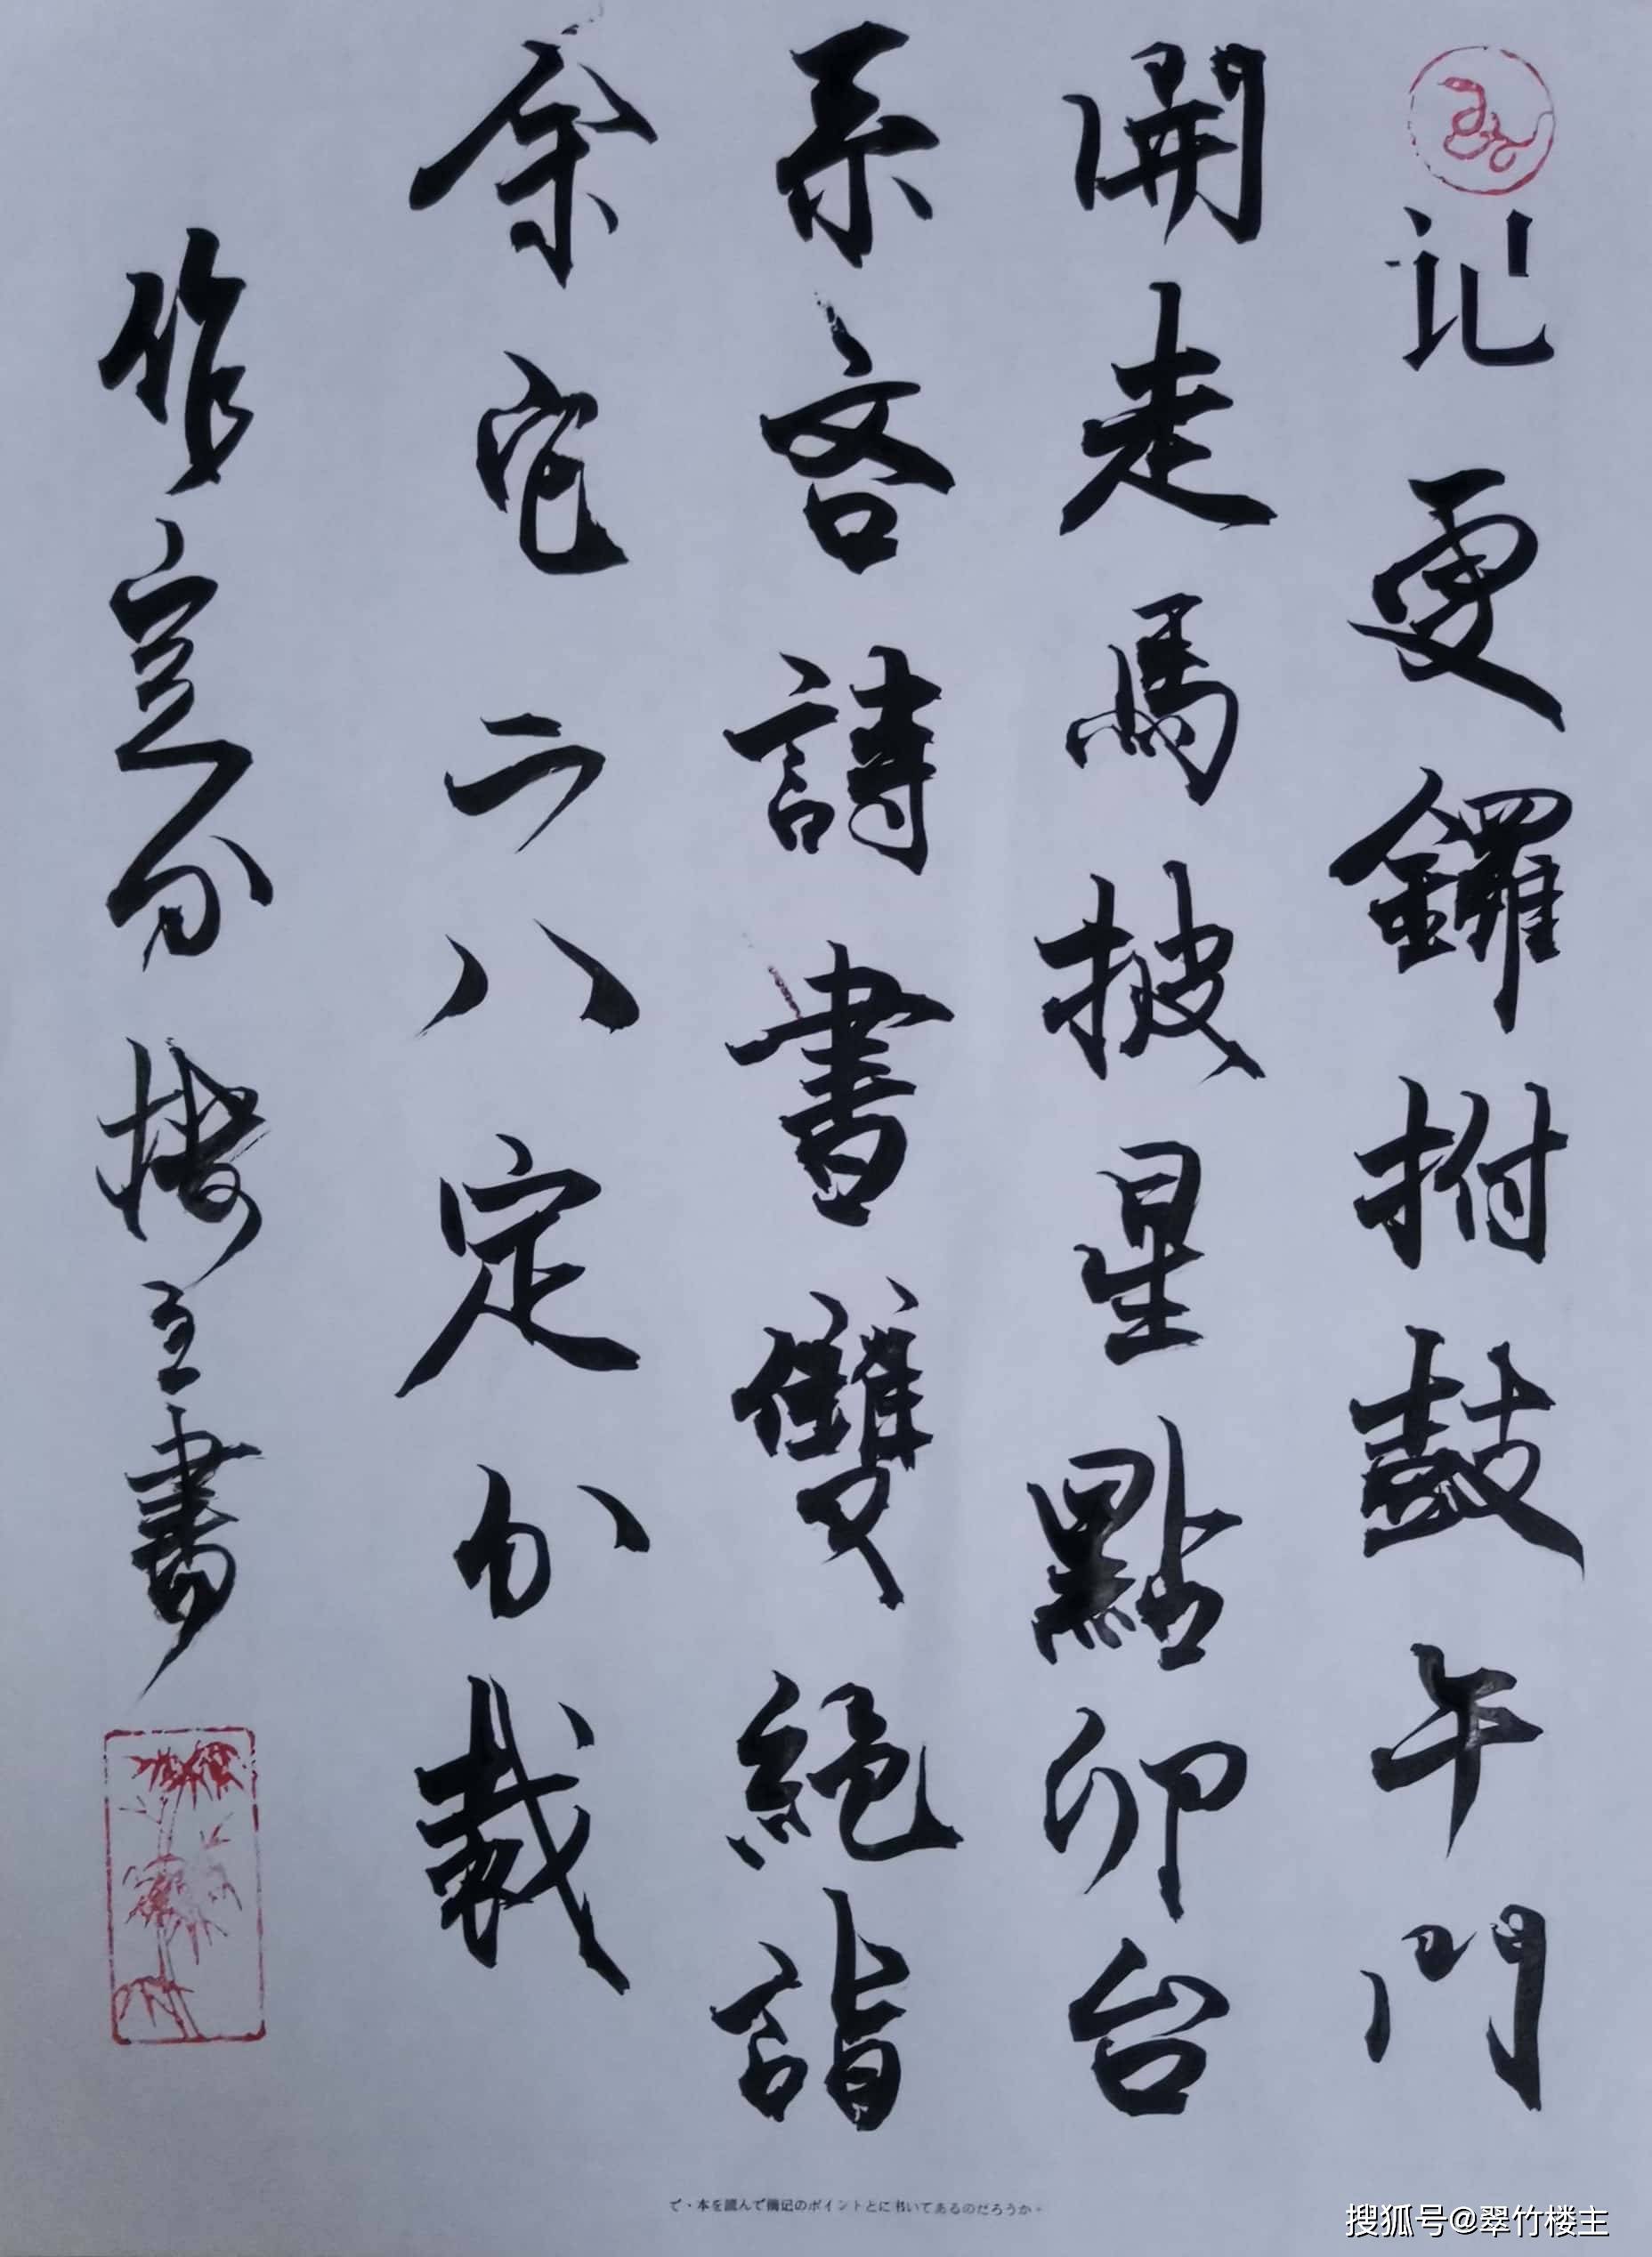 记更鑼拊鼓午門
開走馬披星點卯台
系吝詩書雙絕詣
余它二八定分裁
作 楼主書
で・本を読んで 记のポイントとに书いてあるのだろうか。
搜狐号@翠竹楼主